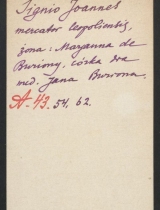 Signio Joannes
mercator leopoliensis,
żona: Maryanna de
Buriony, córka dra
med. Jana Buriona.
A-43. 54. 62.